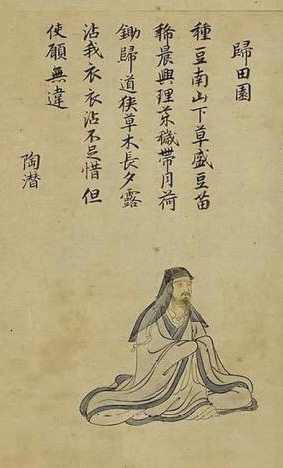 歸田園
種豆南山下草盛豆苗
稀晨興理荒穢帶月荷
鋤歸道狹草木長夕露
沾我衣衣沾不足惜但
使願無違
陶潜